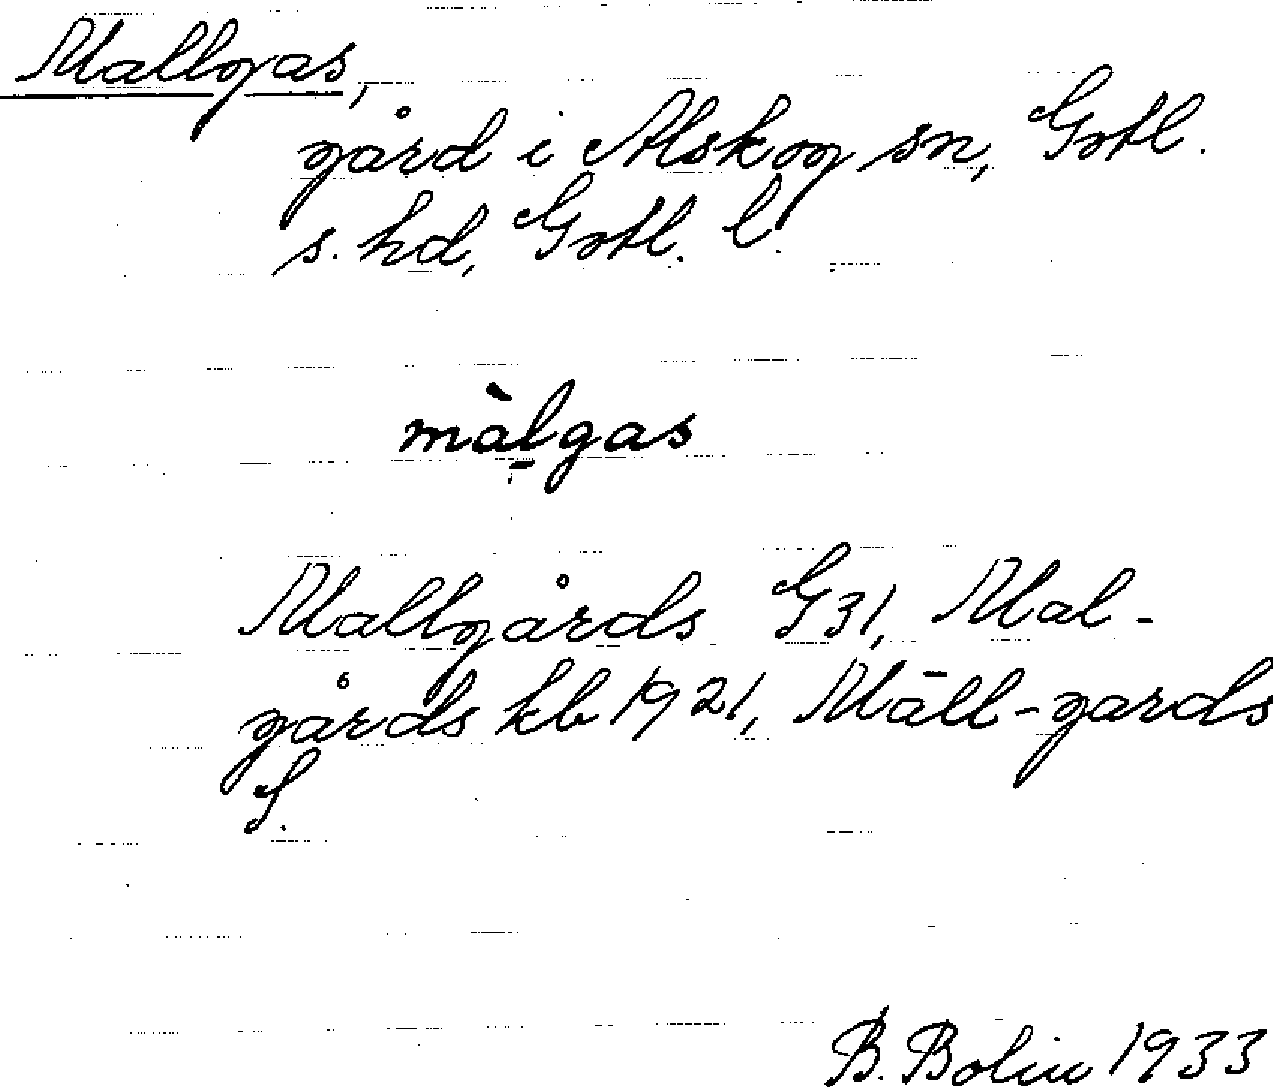 Mallgas,
gård i Alskog sn, Gotl.
s. hd, Gotl. l.
màl̠gas
Mallgårds G31, Mal-
gårds kb 1921, Māll-gards
S.
B. Bolin 1933